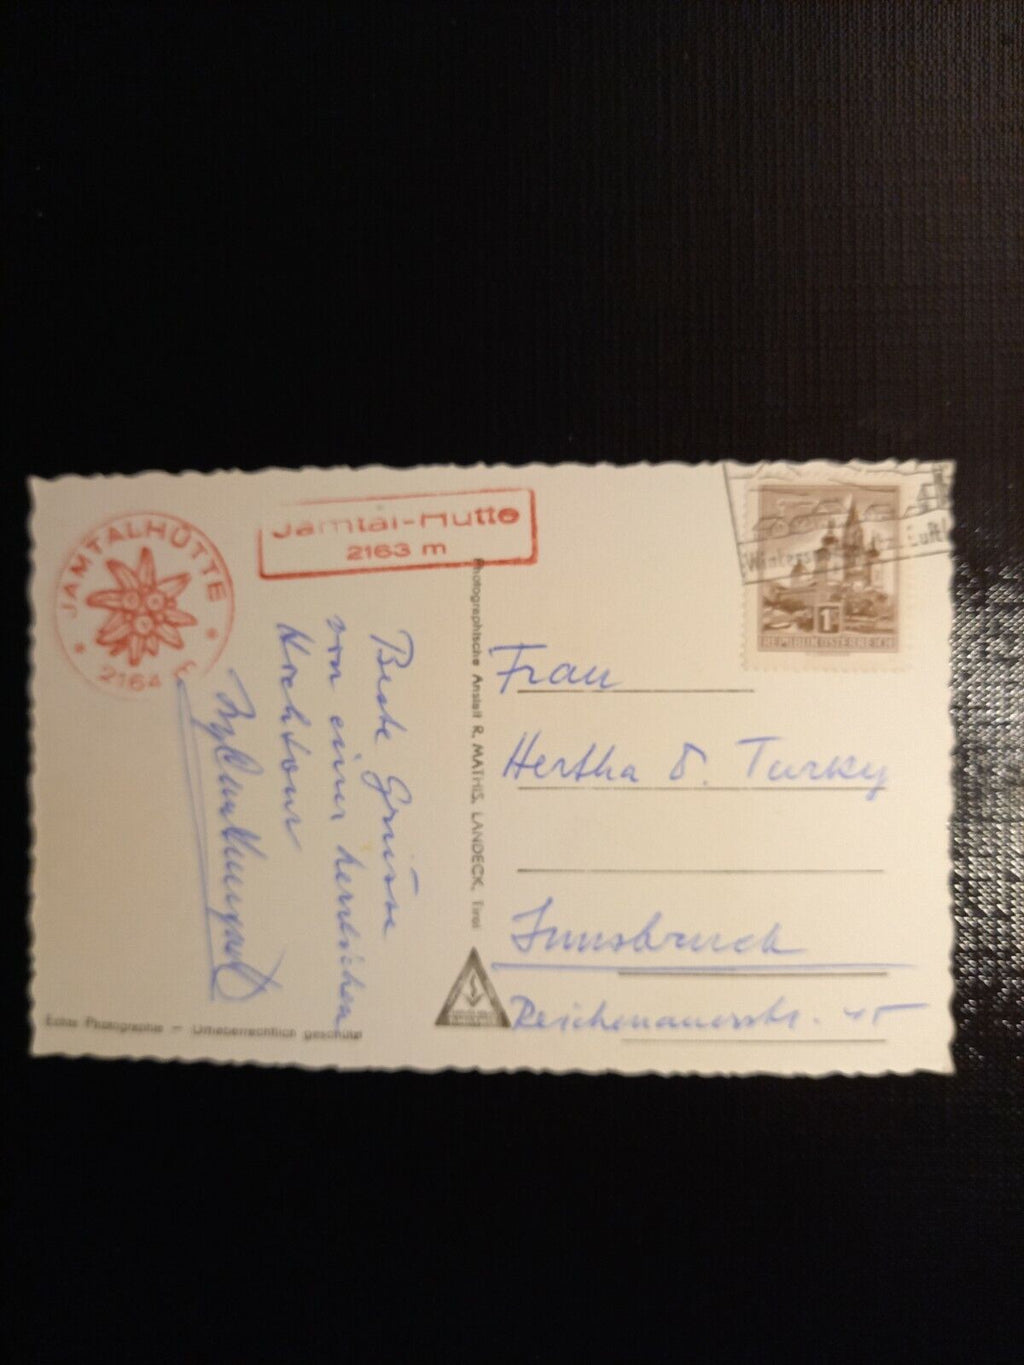 JAMTALHÜTTE
2164
Jamtal-Hütte
2163 m
Beste Grüsse
von einer herrlichen
Hochtour
Echte Photographie — Urheberrechtlich geschützt
Photographische Anstalt R. MATHIS, LANDECK, Tirol
Luft!
1S
REPUBLIK ÖSTERREICH
Frau
Hertha Turky
Innsbruck
Reichenauerstr. 45